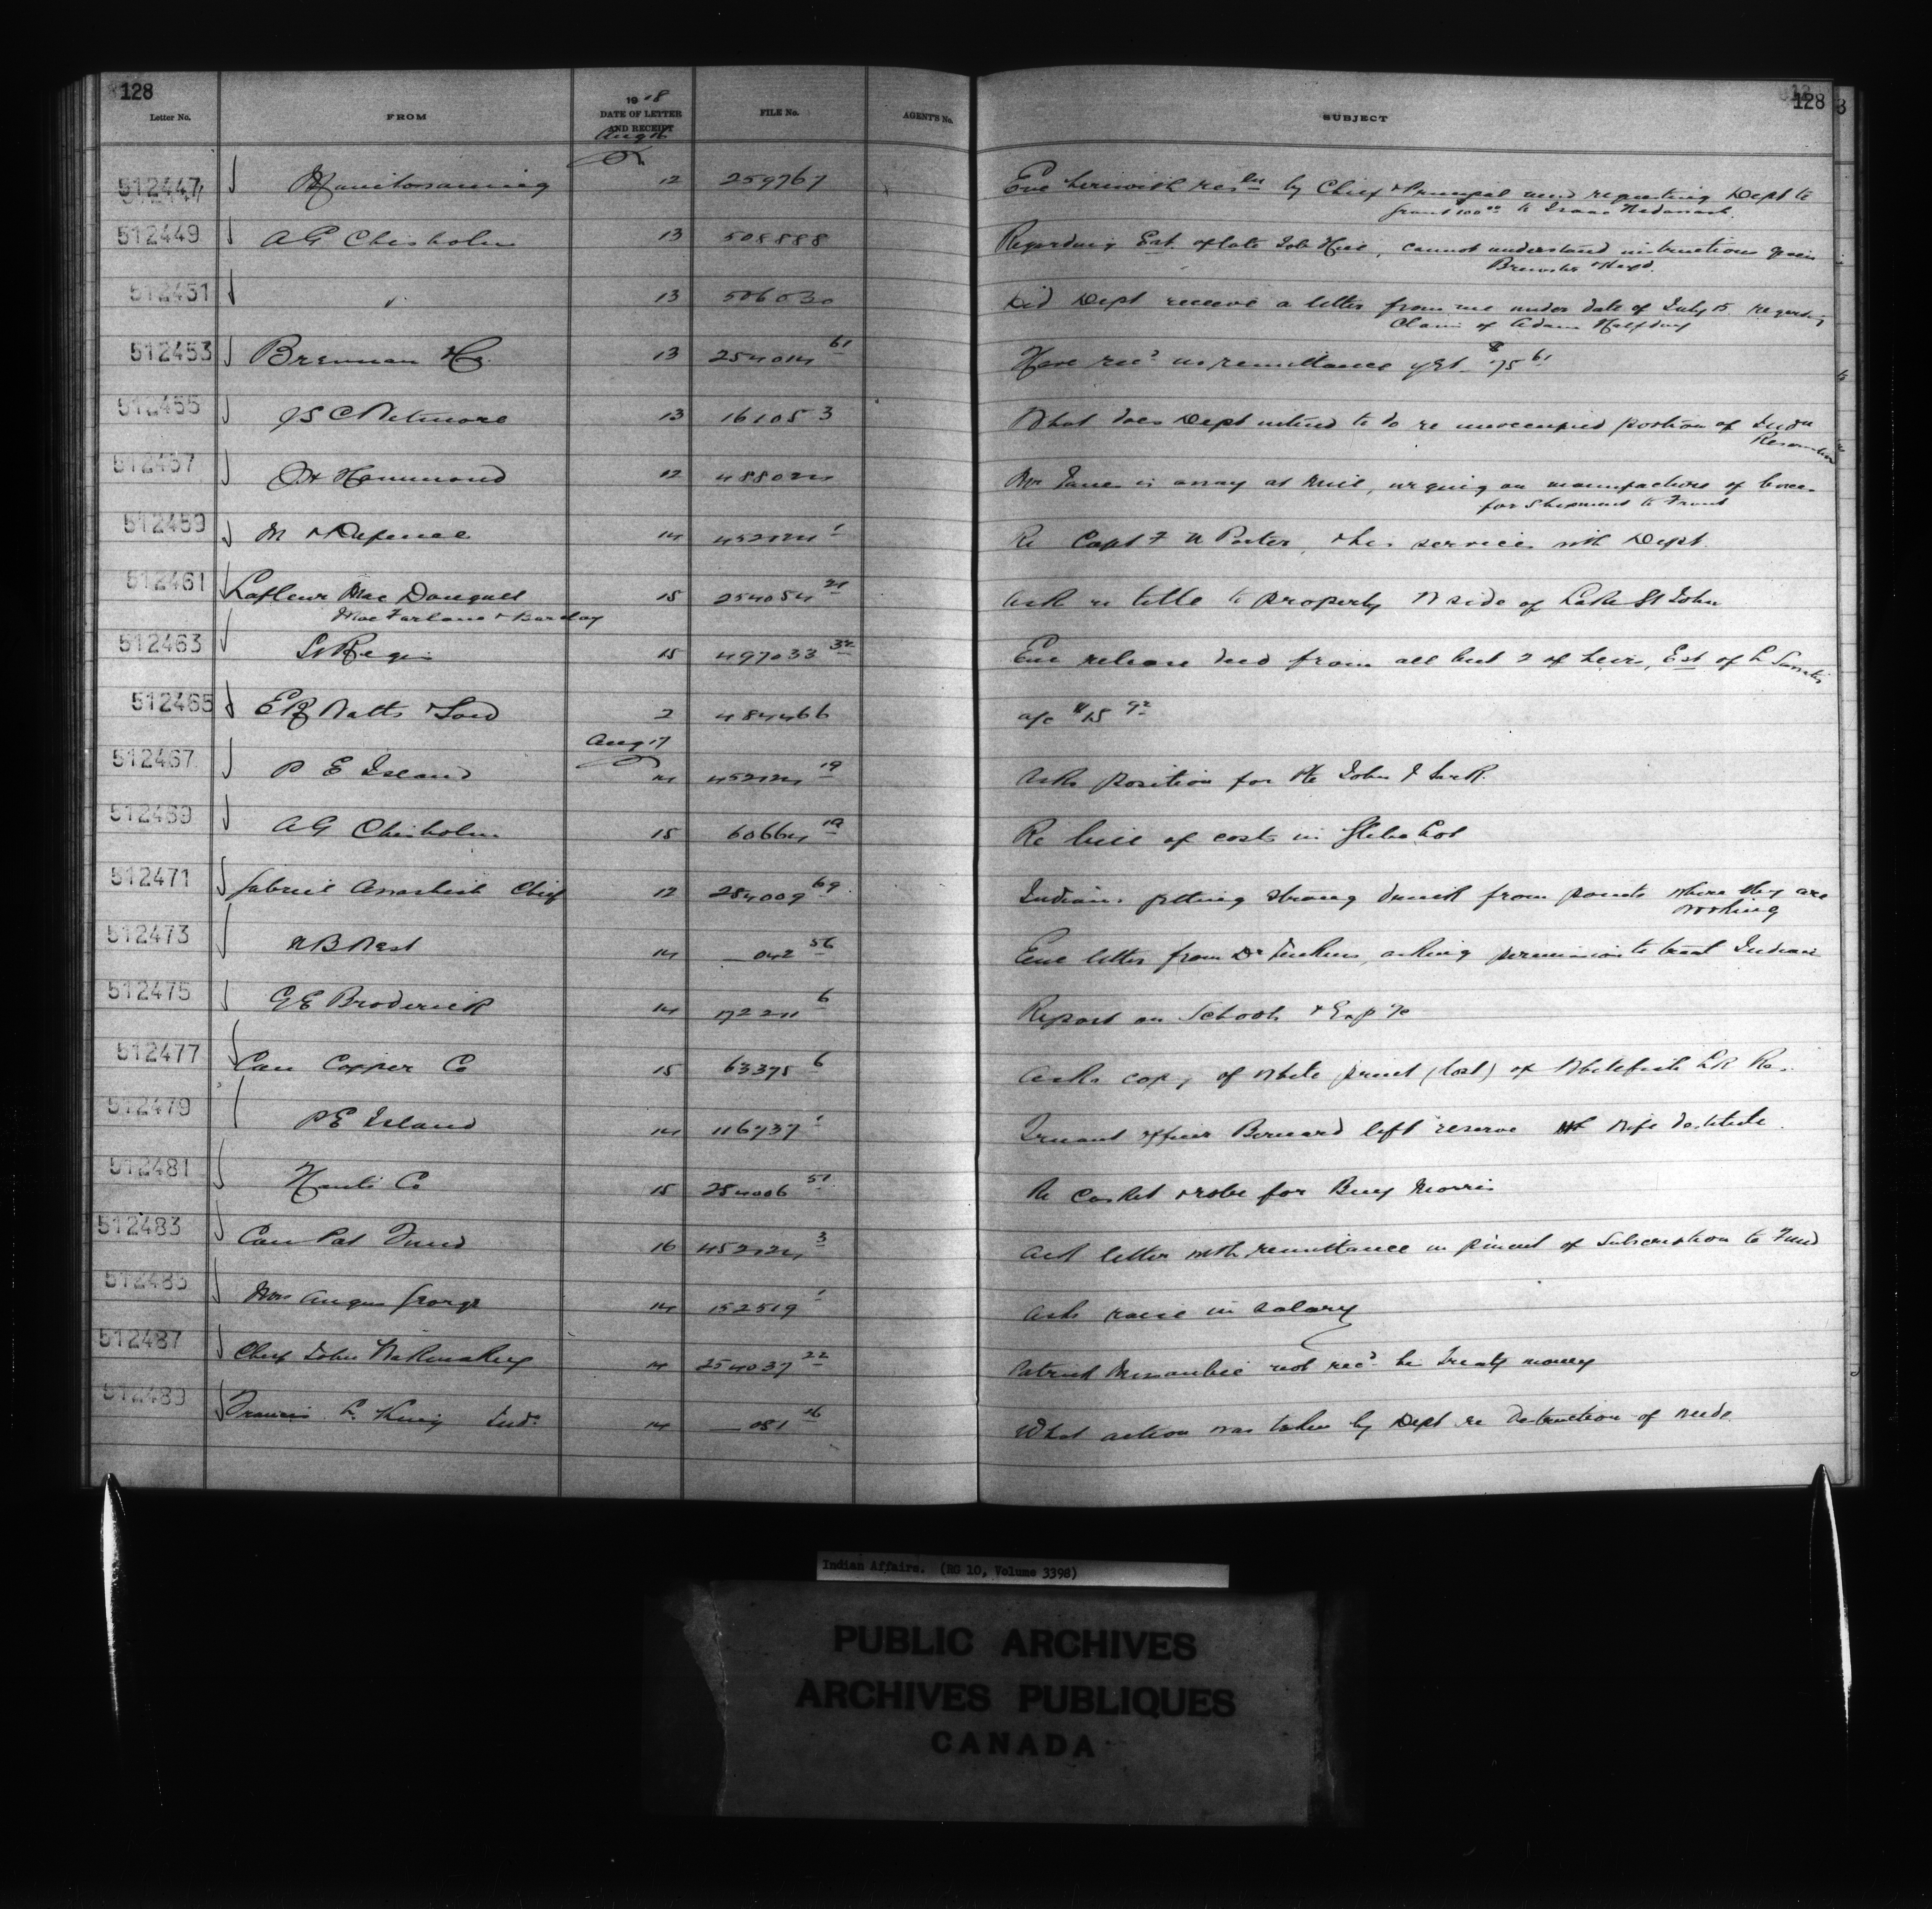 128 128
Letter No. FROM 1918 DATE OF LETTER AND RECEIPT FILE No. AGENT'S No. SUBJECT
Aug 16
512447 Manitowaning 12 259767 Enc herewith resln by Chief & Principal men requesting Dept to
grant 100 00 to Isaac
512449 A G Chisholm 13 508888 Regarding Est. of late Job Hill, cannot understand instructions given
Brewster & Heyd.
512451 " 13 506030 Did Dept receive a letter from me under date of July 15 regarding
Claim of Adam Halfday
512453 Brennan 13 254014 61 Have recd no remittance yet $75 61
512455 J S C Wetmore 13 161053 What does Dept intend to do re unoccupied portion of Indn
Reservation
512457 Hammond 12 Mr is away at mill, urging on manufacture of boxes
for shipment to Front
512459 M & Defence 14 452124 1 Re Capt F N Porter, & his services with Dept.
512461 Lafleur MacDougall 15 254054 21 Ask re title to property N side of Lake St John
MacFarlane & Barclay
512463 St Regis 15 497033 32 Enc release deed from all but 2 of heirs, Est of L
512465 E R Watts & Son 2 484466 a/c $15 92
Aug 17
512467 P E Island 14 452124 19 Asks position for Pte John J Sark.
512469 A G Chisholm 15 60664 1a Re bill of costs in Glebe Lot
512471 Gabriel Chief 12 254009 69 Indians getting strong drink from points where they are
working
512473 N B West 14 — 042 56 Enc letter from Dr asking permission to treat Indians
512475 G E Broderick 14 172211 6 Report on Schools & Exp a/c
512477 Can Copper Co 15 63375 6 Asks copy of white print (lost) of Whitefish LR Res.
512479 P E Island 14 116737 1 Truant officer Bernard left reserve Wife destitute.
512481 Hants Co 15 254006 51 Re casket & robe for Benj Morris
512483 Can Pat Fund 16 452124 3 Ack letter with remittance in pmnt of Subscription to Fund
512485 Mrs Angus George 14 152519 1 Asks raise in salary
512487 Chief John 14 254037 22 Patrick not recd his Treaty money
512489 Francis L. King Ind. 14 — 081 16 What action was taken by Dept re destruction of weeds
Indian Affairs. (RG 10, Volume 3398)
PUBLIC ARCHIVES
ARCHIVES PUBLIQUES
CANADA